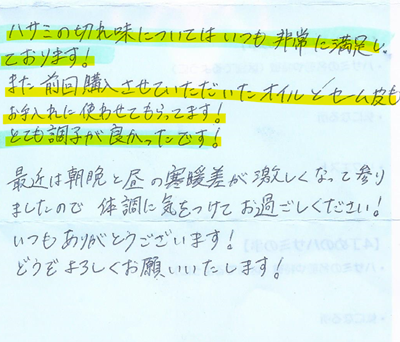 ハサミの切れ味についてはいつも非常に満足し
ております!
また前回購入させていただいたオイルとセーム皮も
お手入れに使わせてもらってます!
とても調子が良かったです!
最近は朝晩と昼の寒暖差が激しくなって参り
ましたので 体調に気をつけてお過ごしください!
いつもありがとうございます!
どうぞよろしくお願いいたします!